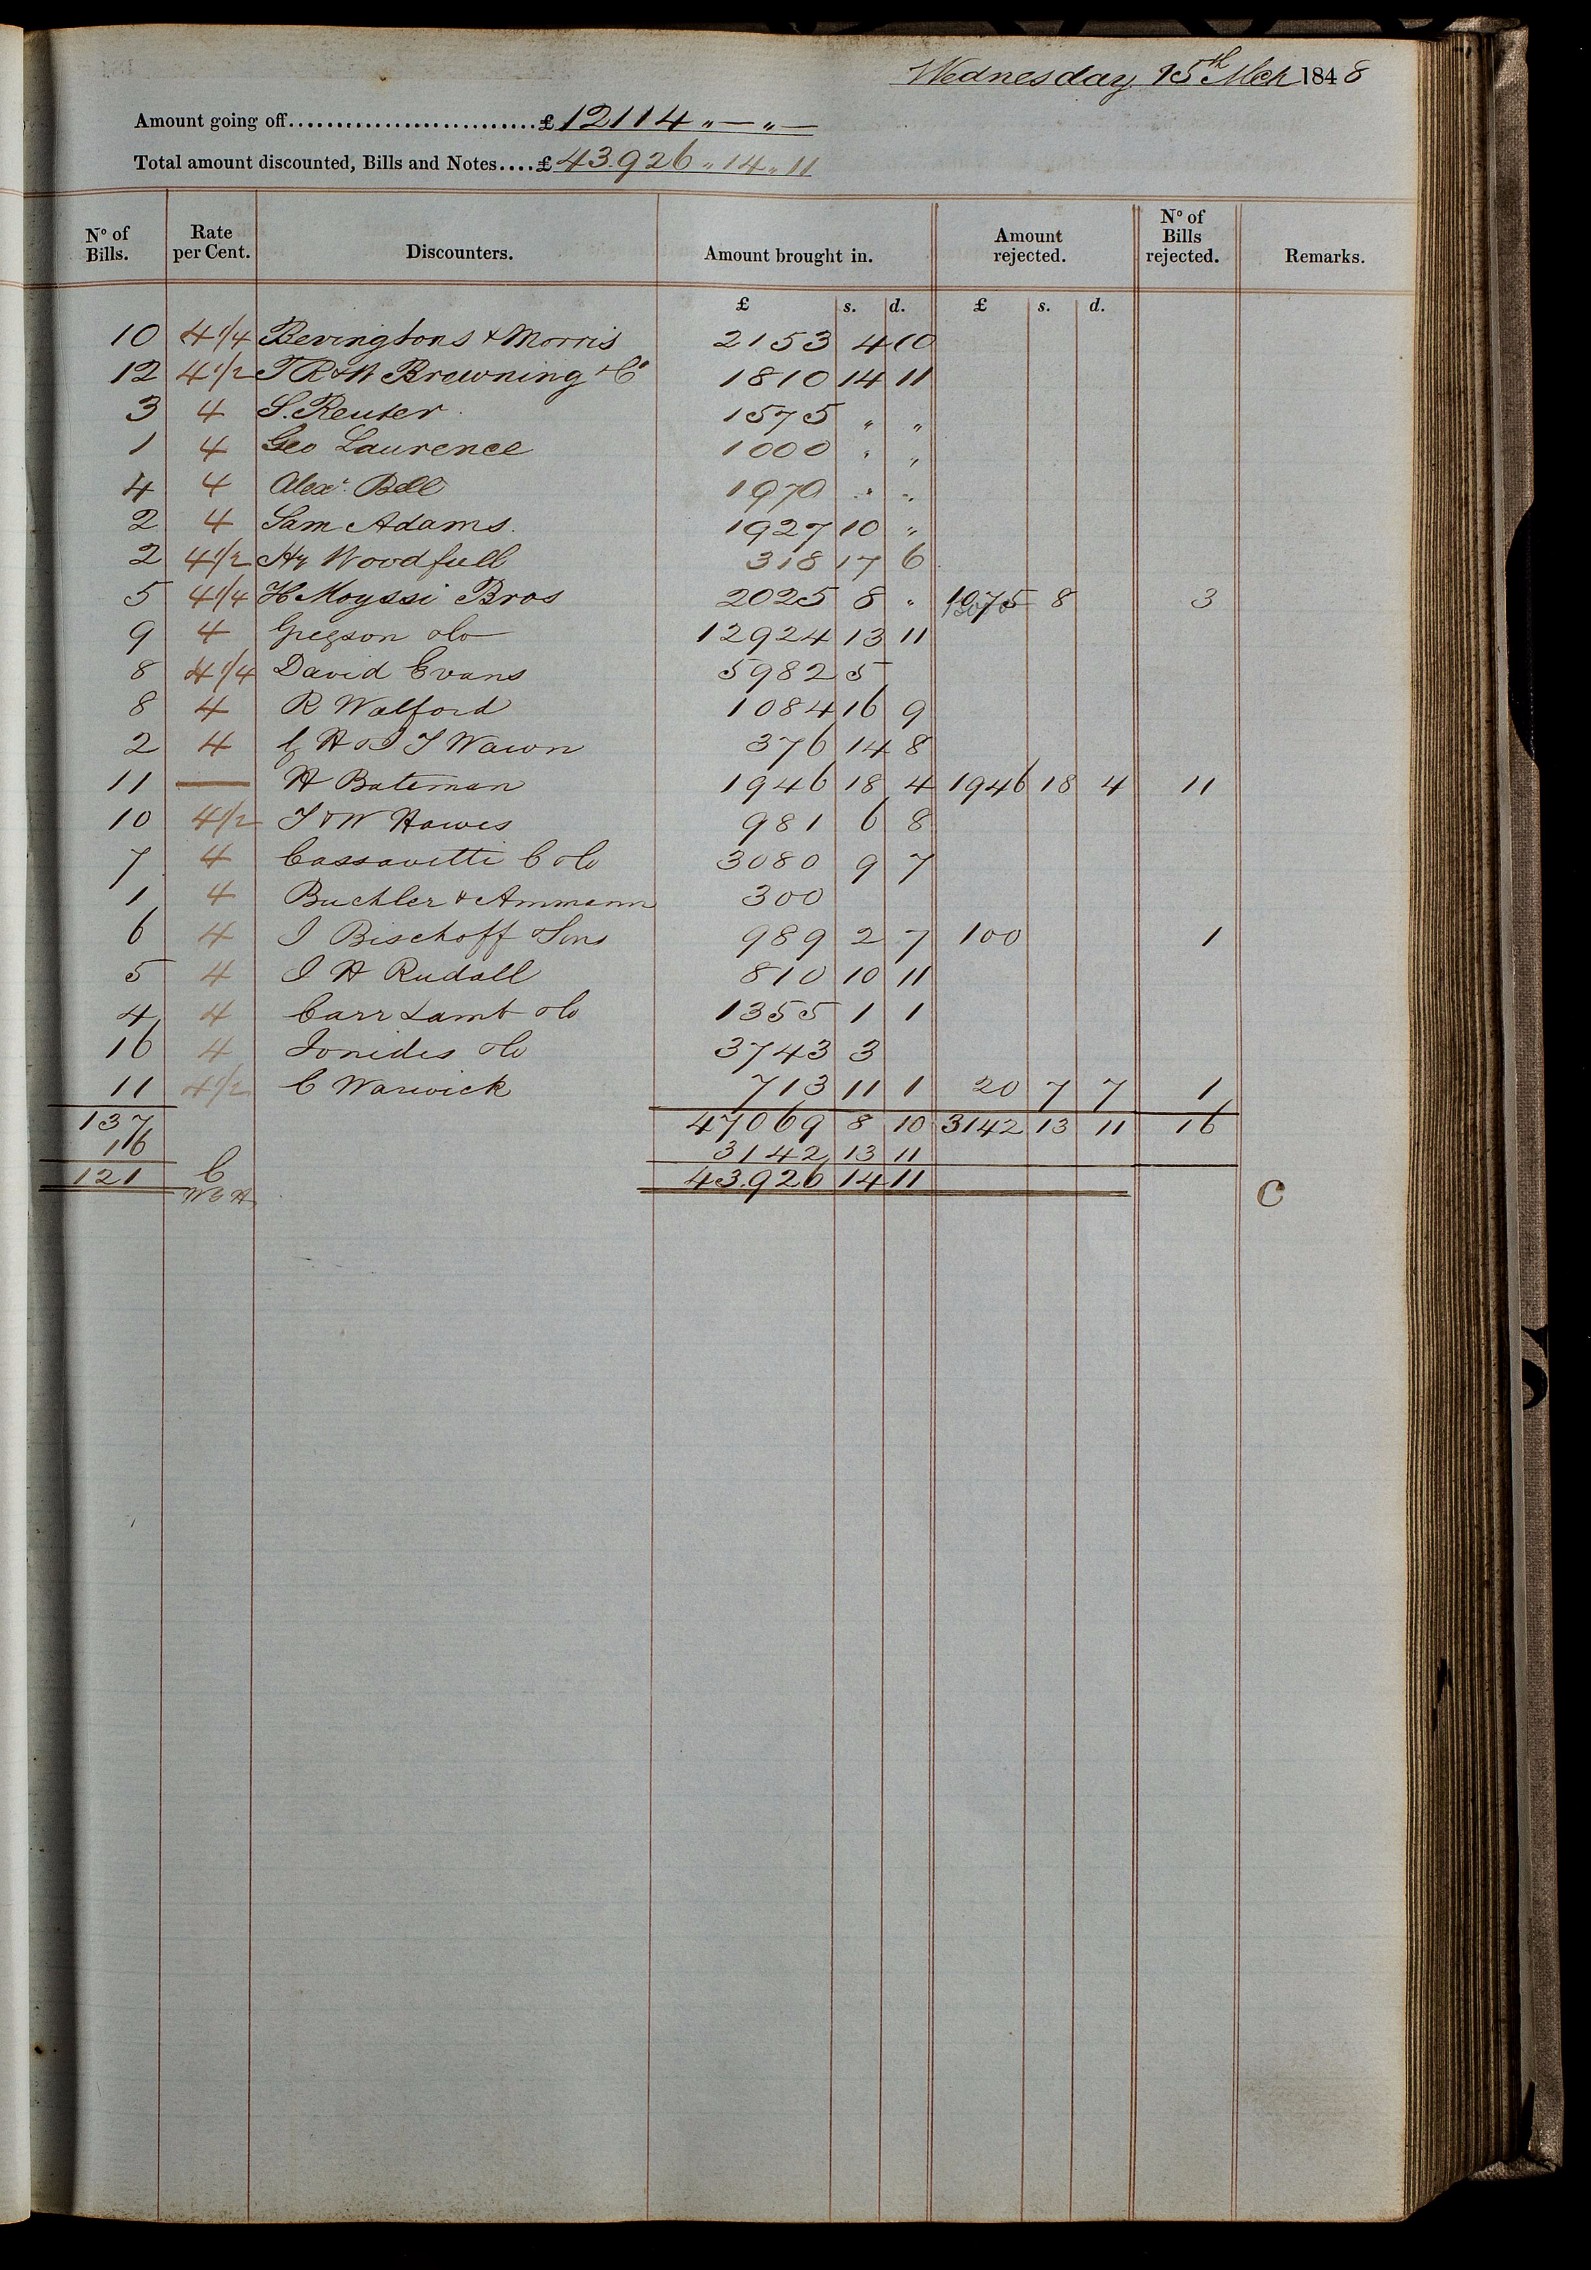 Wednesday 15th Mch 1848
Amount going off..........................£ 12114 „ — „ —
Total amount discounted, Bills and Notes....£ 43.926 „ 14 „ 11
No of Bills. Rate per Cent. Discounters. Amount brought in. Amount rejected. No of Bills rejected. Remarks.
£ s. d. £ s. d.
10 4 1/4 Bevingtons & Morris 2153 4 10
12 4 1/2 T R & W Browning & Co 1810 14 11
3 4 S. Reuter 1575 „ „
1 4 Geo Laurence 1000 „ „
4 4 Alexr. Bell 1970 „ „
2 4 Sam Adams. 1927 10 „
2 4 1/2 Hy Woodfull 318 17 6
5 4 1/4 H Moyssi Bros 2025 8 „ 1075 8 3
9 4 Gregson & Co 12924 13 11
8 4 1/4 David Evans 5982 5
8 4 R Walford 1084 16 9
2 4 C H & J T Wawn 376 14 8
11 — H Bateman 1946 18 4 1946 18 4 11
10 4 1/2 T & W Hawes 981 6 8
7 4 Cassavetti C & Co 3080 9 7
1 4 Buchler & Ammann 300
6 4 J Bischoff & Sons 989 2 7 100 1
5 4 J H Rudall 810 10 11
4 4 Carr Lamb & Co 1355 1 1
16 4 Ionides & Co 3743 3
11 4 1/2 C Warwick 713 11 1 20 7 7 1
137 47069 8 10 3142 13 11 16
16 3142 13 11
121 C 43.926 14 11
W E H C